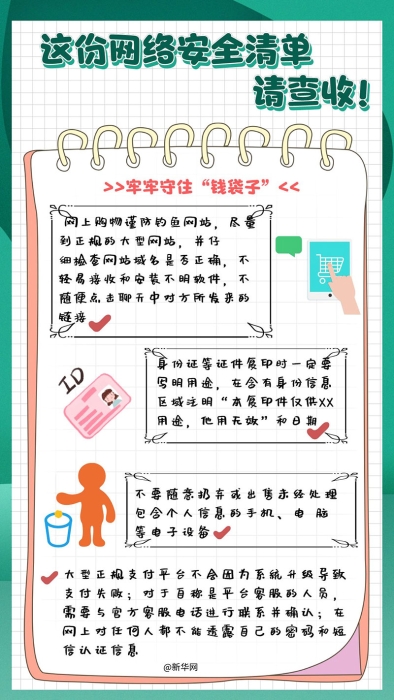 这份网络安全清单
请查收!
>>牢牢守住“钱袋子”<<
网上购物谨防钓鱼网站，尽量
到正规的大型网站，并仔
细检查网站域名是否正确，不
轻易接收和安装不明软件，不
随便点击聊天中对方所发来的
链接
身份证等证件复印时一定要
写明用途，在含有身份信息
区域注明“本复印件仅供XX
用途，他用无效”和日期
ID
不要随意扔弃或出售未经处理
包含个人信息的手机、电脑
等电子设备
大型正规支付平台不会因为系统升级导致
支付失败；对于自称是平台客服的人员，
需要与官方客服电话进行联系并确认；在
网上对任何人都不能透露自己的密码和短
信认证信息
@新华网